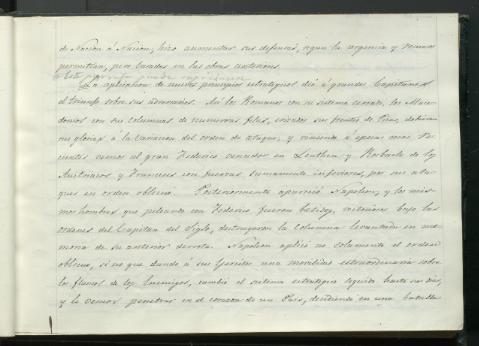 de Nacion á Nacion, hizo aumentar sus defensas, segun la urgencia y recursos
permitian, pero basadas en las obras anteriores.
Este
La aplicacion de nuevos principios estratégicos dió á grandes Capitanes
el triunfo sobre sus adversarios. Asi los Romanos con su sistema cerrado, los Mace-
donios con sus columnas de numerosas filas, erizados sus frentes de Picas, debieron
sus glorias á la variacion del orden de ataque; y viniendo á épocas mas Re-
cientes vemos al gran Federico vencedor en Leuthen y Rosbach de los
Austriacos y Franceses con fuerzas sumamente inferiores, por sus ata-
ques en orden oblicuo. Posteriormente apareció Napoleon, y los mis-
mos hombres que peleando con Federico fueron batidos, victoriosos bajo las
ordenes del Capitan del Siglo, destruyeron la columna levantada en me-
moria de su anterior derrota. Napoleon aplicó no solamente el orden
oblicuo, si no que dando á sus Ejercitos una movilidad extraordinaria sobre
los flancos de los Enemigos, cambió el sistema estratégico seguido hasta sus dias,
y le vemos penetrar en el corazon de un Pais, decidiendo en una batalla